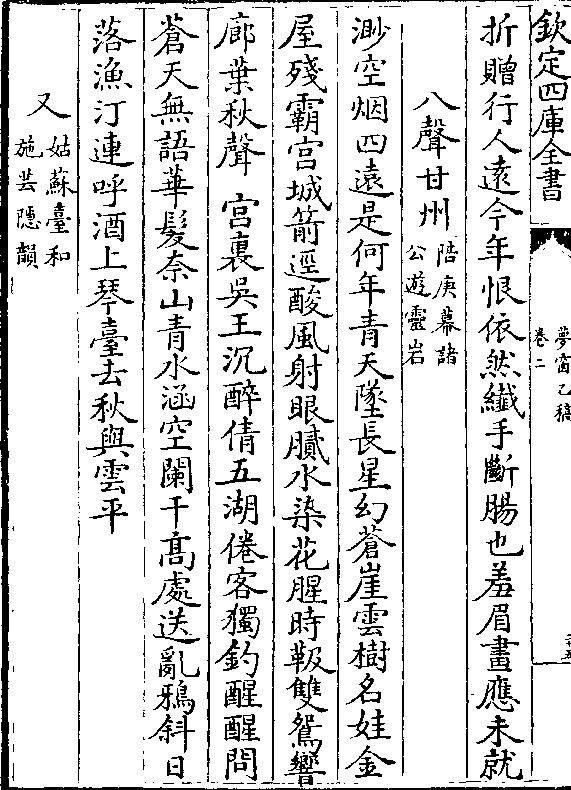 欽定四庫全書
夢窗乙稿
卷二
折贈行人遠今年恨依然纖手斷腸也羞眉畫應未就
八聲甘州
陪庚幕諸
公遊靈岩
渺空烟四遠是何年青天墜長星幻蒼崖雲樹名娃金
屋殘霸宫城箭逕酸風射眼膩水染花腥時靸雙鴛響
廊葉秋聲 宫裏吳王沉醉倩五湖倦客獨釣醒醒問
蒼天無語華髮奈山青水涵空闌干高處送亂鴉斜日
落漁汀連呼酒上琴臺去秋與雲平
又
姑蘇臺和
施芸隱韻